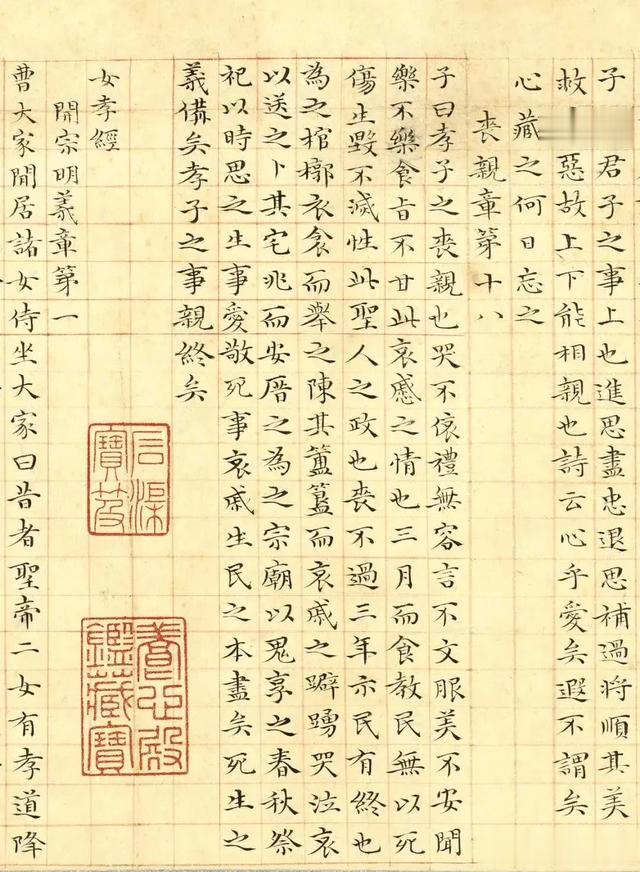 子君子之事上也進思盡忠退思補過將順其美
救惡故上下能相親也詩云心乎愛矣遐不謂矣
心藏之何日忘之
喪親章第十八
子曰孝子之喪親也哭不偯禮無容言不文服美不安聞
樂不樂食旨不甘此哀慼之情也三月而食教民無以死
傷生毀不滅性此聖人之政也喪不過三年示民有終也
為之棺槨衣衾而舉之陳其簠簋而哀戚之躃踴哭泣哀
以送之卜其宅兆而安厝之為之宗廟以鬼享之春秋祭
祀以時思之生事愛敬死事哀戚生民之本盡矣死生之
義備矣孝子之事親終矣
石渠寶笈
養心殿鑑藏寶
女孝經
開宗明義章第一
曹大家閒居諸女侍坐大家曰昔者聖帝二女有孝道降